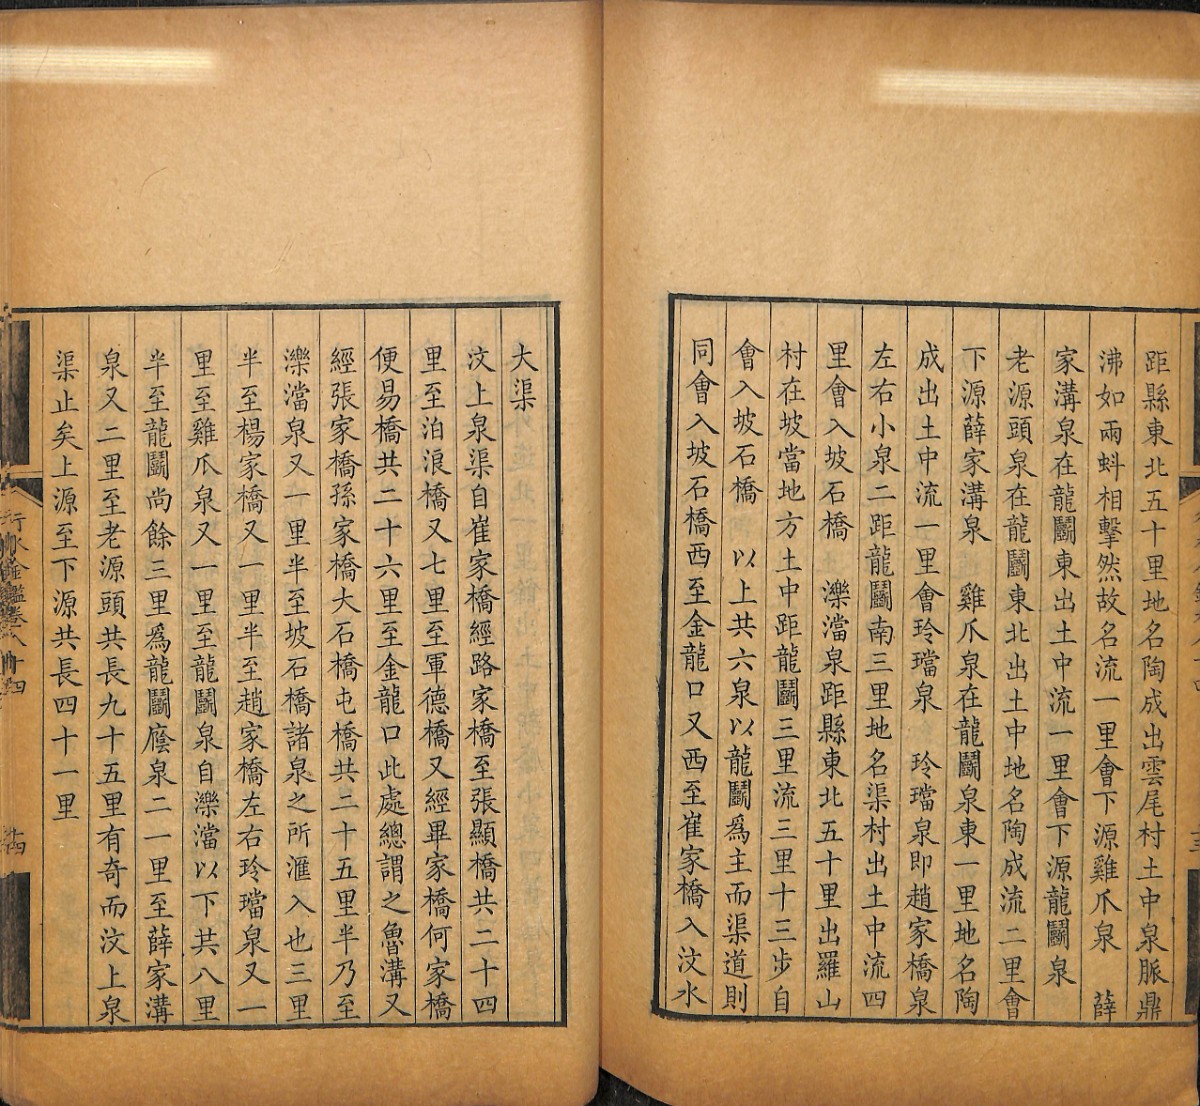 距縣東北五十里地名陶成出雲尾村土中泉脈鼎
沸如兩蚪相擊然故名流一里會下源雞爪泉　薛
家溝泉在龍鬭東出土中流一里會下源龍鬭泉
老源頭泉在龍鬭東北出土中地名陶成流二里會
下源薛家溝泉　雞爪泉在龍鬭泉東一里地名陶
成出土中流一里會玲璫泉　玲璫泉即趙家橋泉
左右小泉二距龍鬭南三里地名渠村出土中流四
里會入坡石橋　濼澢泉距縣東北五十里出羅山
村在坡當地方土中距龍鬭三里流三里十三步自
會入坡石橋　以上共六泉以龍鬭爲主而渠道則
同會入坡石橋西至金龍口又西至崔家橋入汶水
大渠
汶上泉渠自崔家橋經路家橋至張顯橋共二十四
里至泊浪橋又七里至軍德橋又經畢家橋何家橋
便易橋共二十六里至金龍口此處總謂之魯溝又
經張家橋孫家橋大石橋屯橋共二十五里半乃至
濼澢泉又一里半至坡石橋諸泉之所滙入也三里
半至楊家橋又一里半至趙家橋左右玲璫泉又一
里至雞爪泉又一里至龍鬭泉自濼澢以下共八里
半至龍鬭尚餘三里爲龍鬭廕泉二一里至薛家溝
泉又二里至老源頭共長九十五里有奇而汶上泉
渠止矣上源至下源共長四十一里
行水金鑑卷八十四
十四